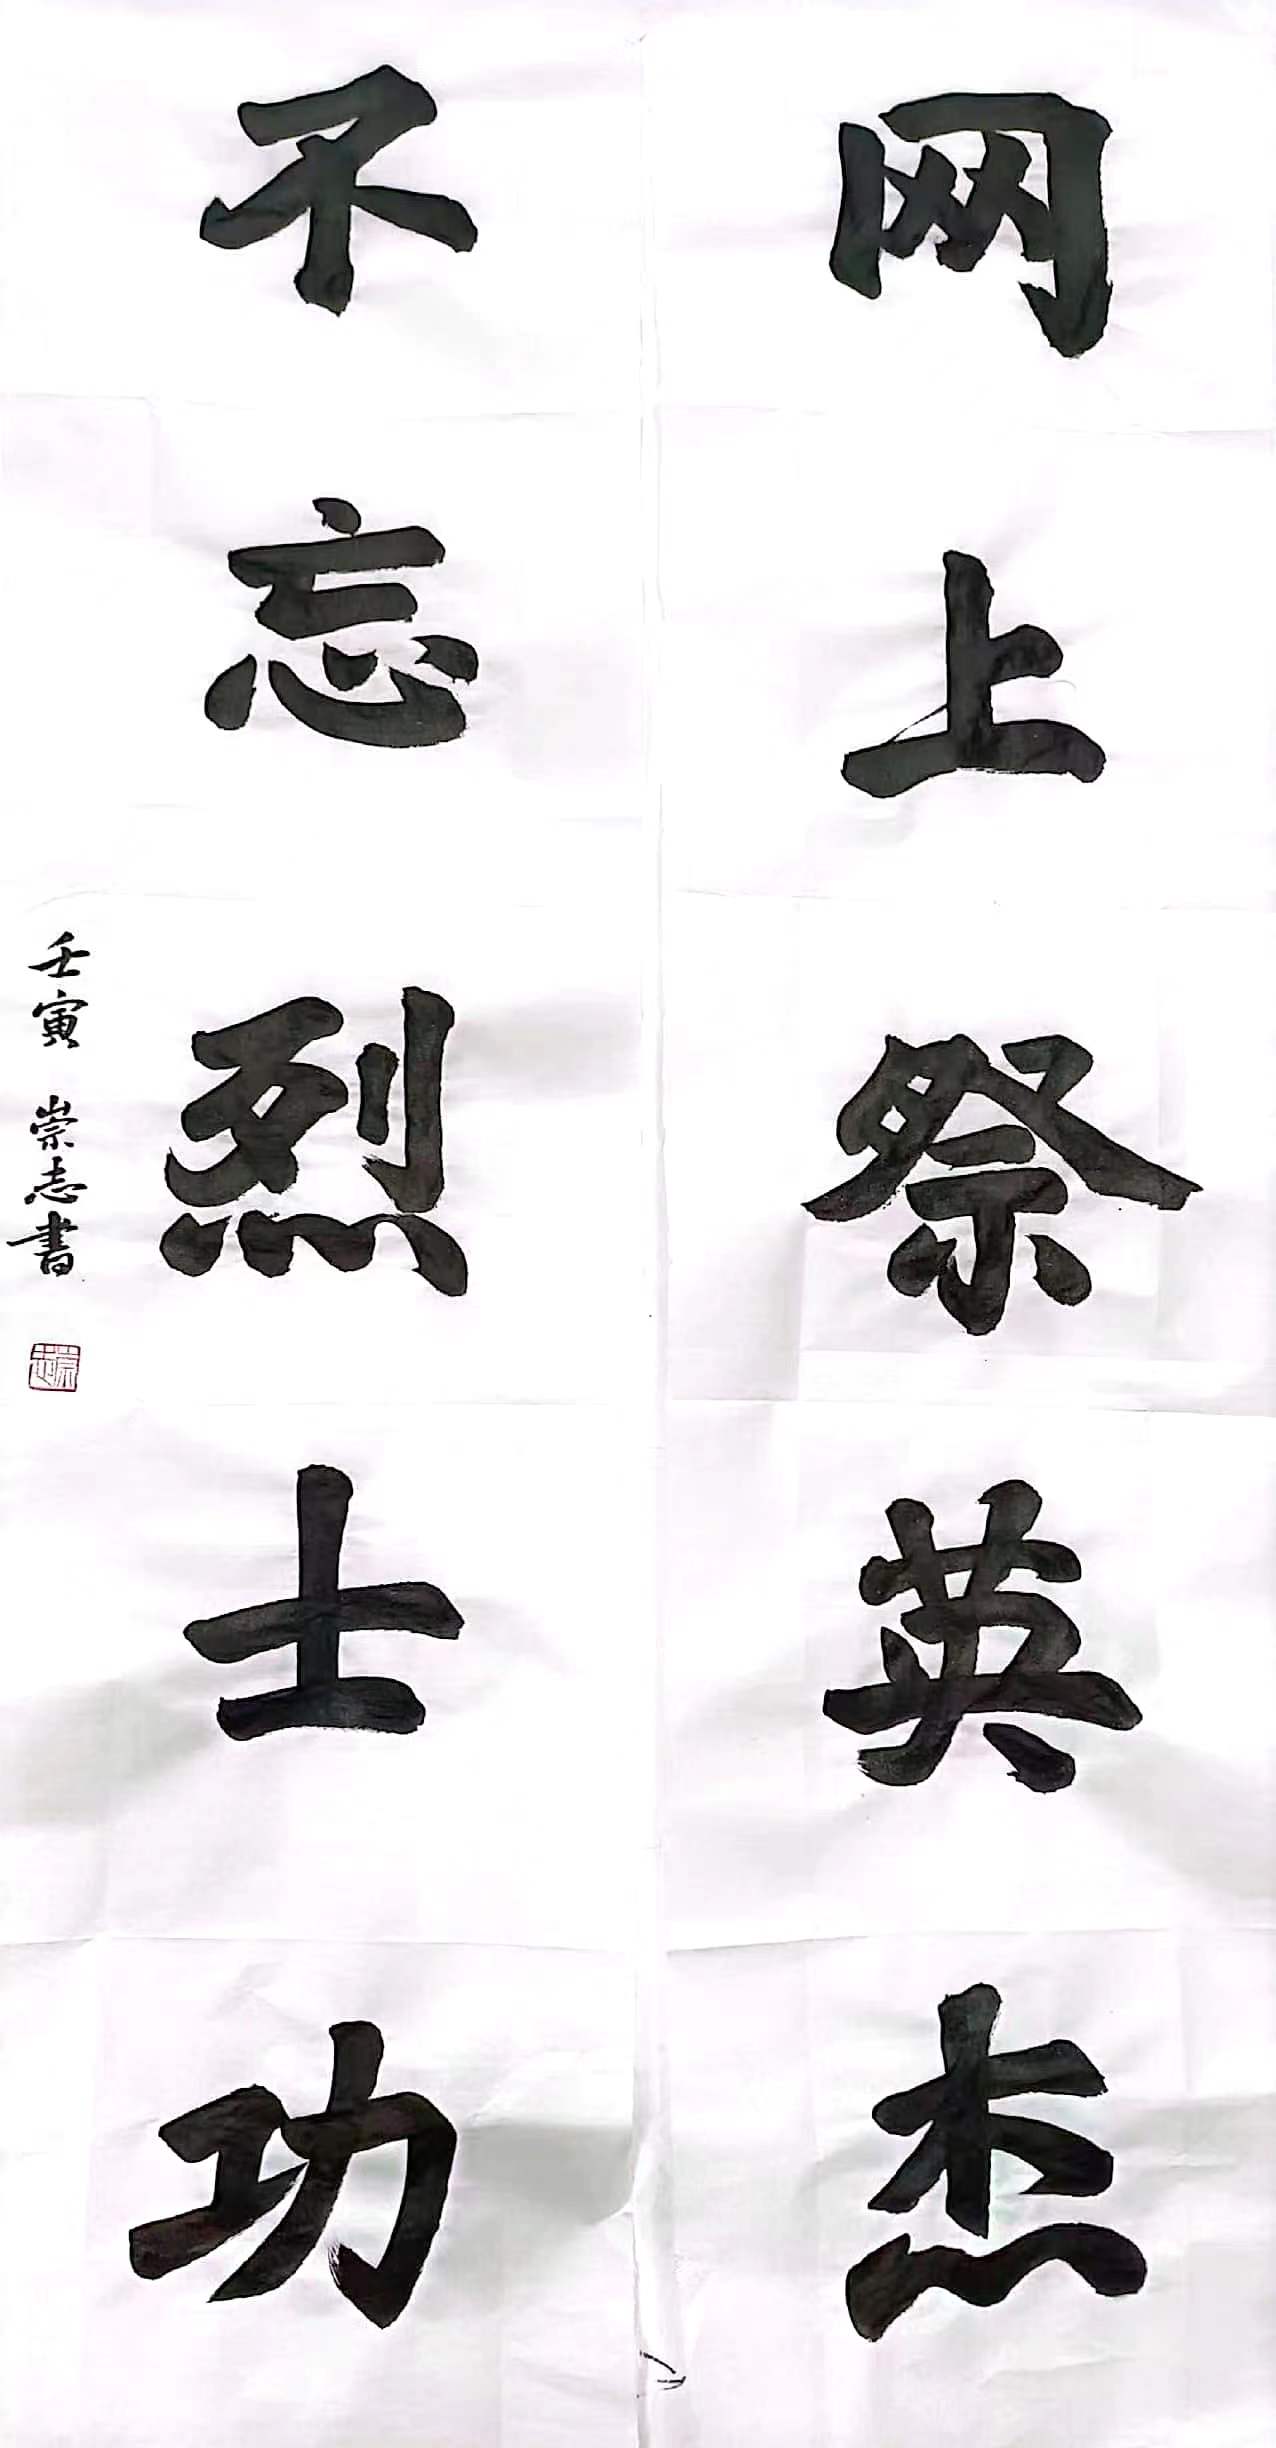 网上祭英杰
不忘烈士功
壬寅 崇志書
崇志